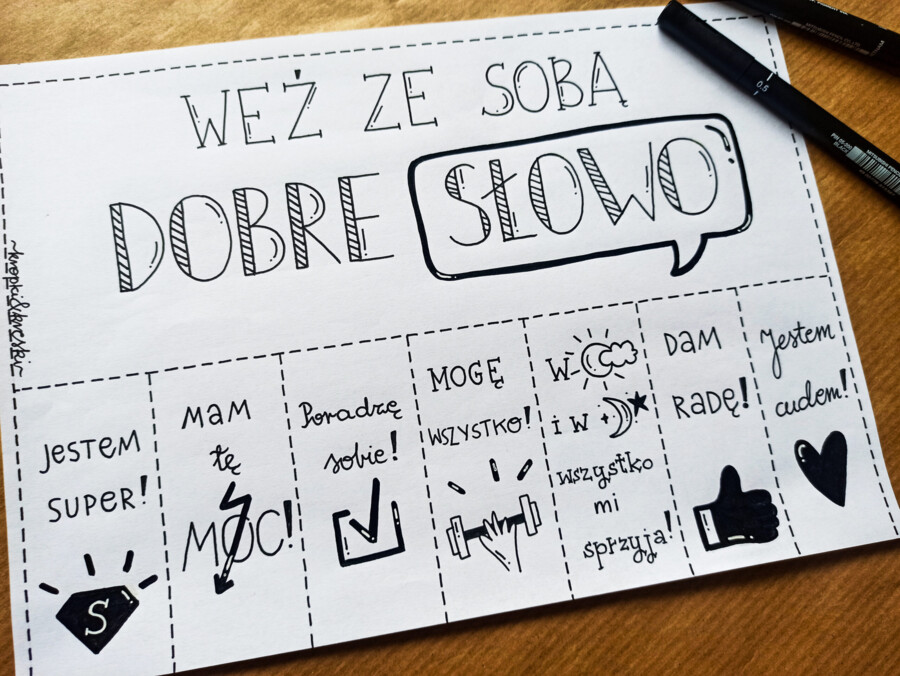 WEŹ ZE SOBĄ
DOBRE SŁOWO
~kropki&kreski~
JESTEM
SUPER!
S
MAM
tę
MOC!
Poradzę
sobie!
MOGĘ
WSZYSTKO!
W
i W
wszystko
mi
sprzyja!
DAM
RADĘ!
Jestem
cudem!
0.5